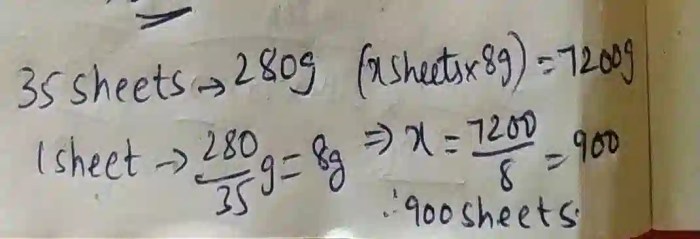 35 sheets → 280g (x sheets × 8g) = 7200g
1 sheet → 280/35 g = 8g ⇒ x = 7200/8 = 900
∴ 900 sheets.